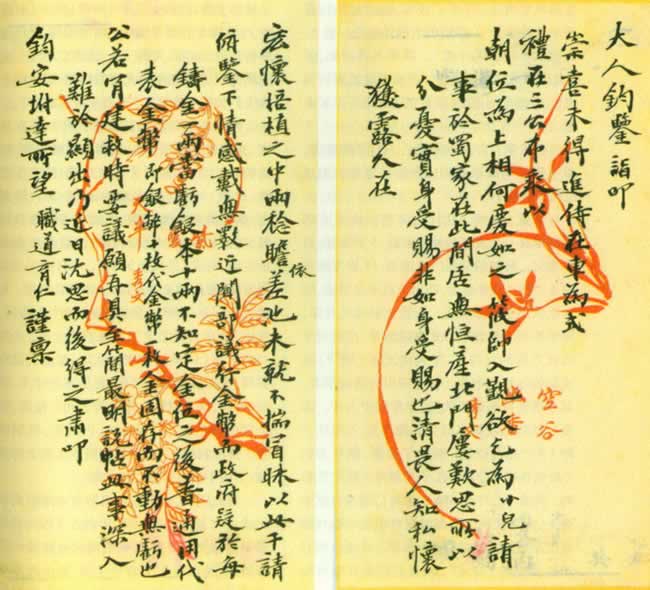 大人鈞鑒詣叩
崇喜未得進侍在東為式
禮在三公布乘以
朝位為上相何慶如之 筱帥入覲欲乞為小兒請
事於蜀家在此間居無恒產北門屢歎思所以
分憂實身受賜非如身受賜也清畏人知私懷
獲露久在
空谷
宏懷培植之中兩稔瞻依差池未就不揣冒昧以此干請
俯鑒下情感戴無數近聞部議行金幣而政府疑於每
鑄金一兩當虧銀本十兩不知定金位之後普通用代
表金幣即銀幣十枚代金幣一枚金固存而不動無虧也
公若肯建救時要議願再具至簡最明說帖此事深入
難於顯出乃近日沈思而後得之肅叩
鈞安坿達所望 職道育仁謹稟